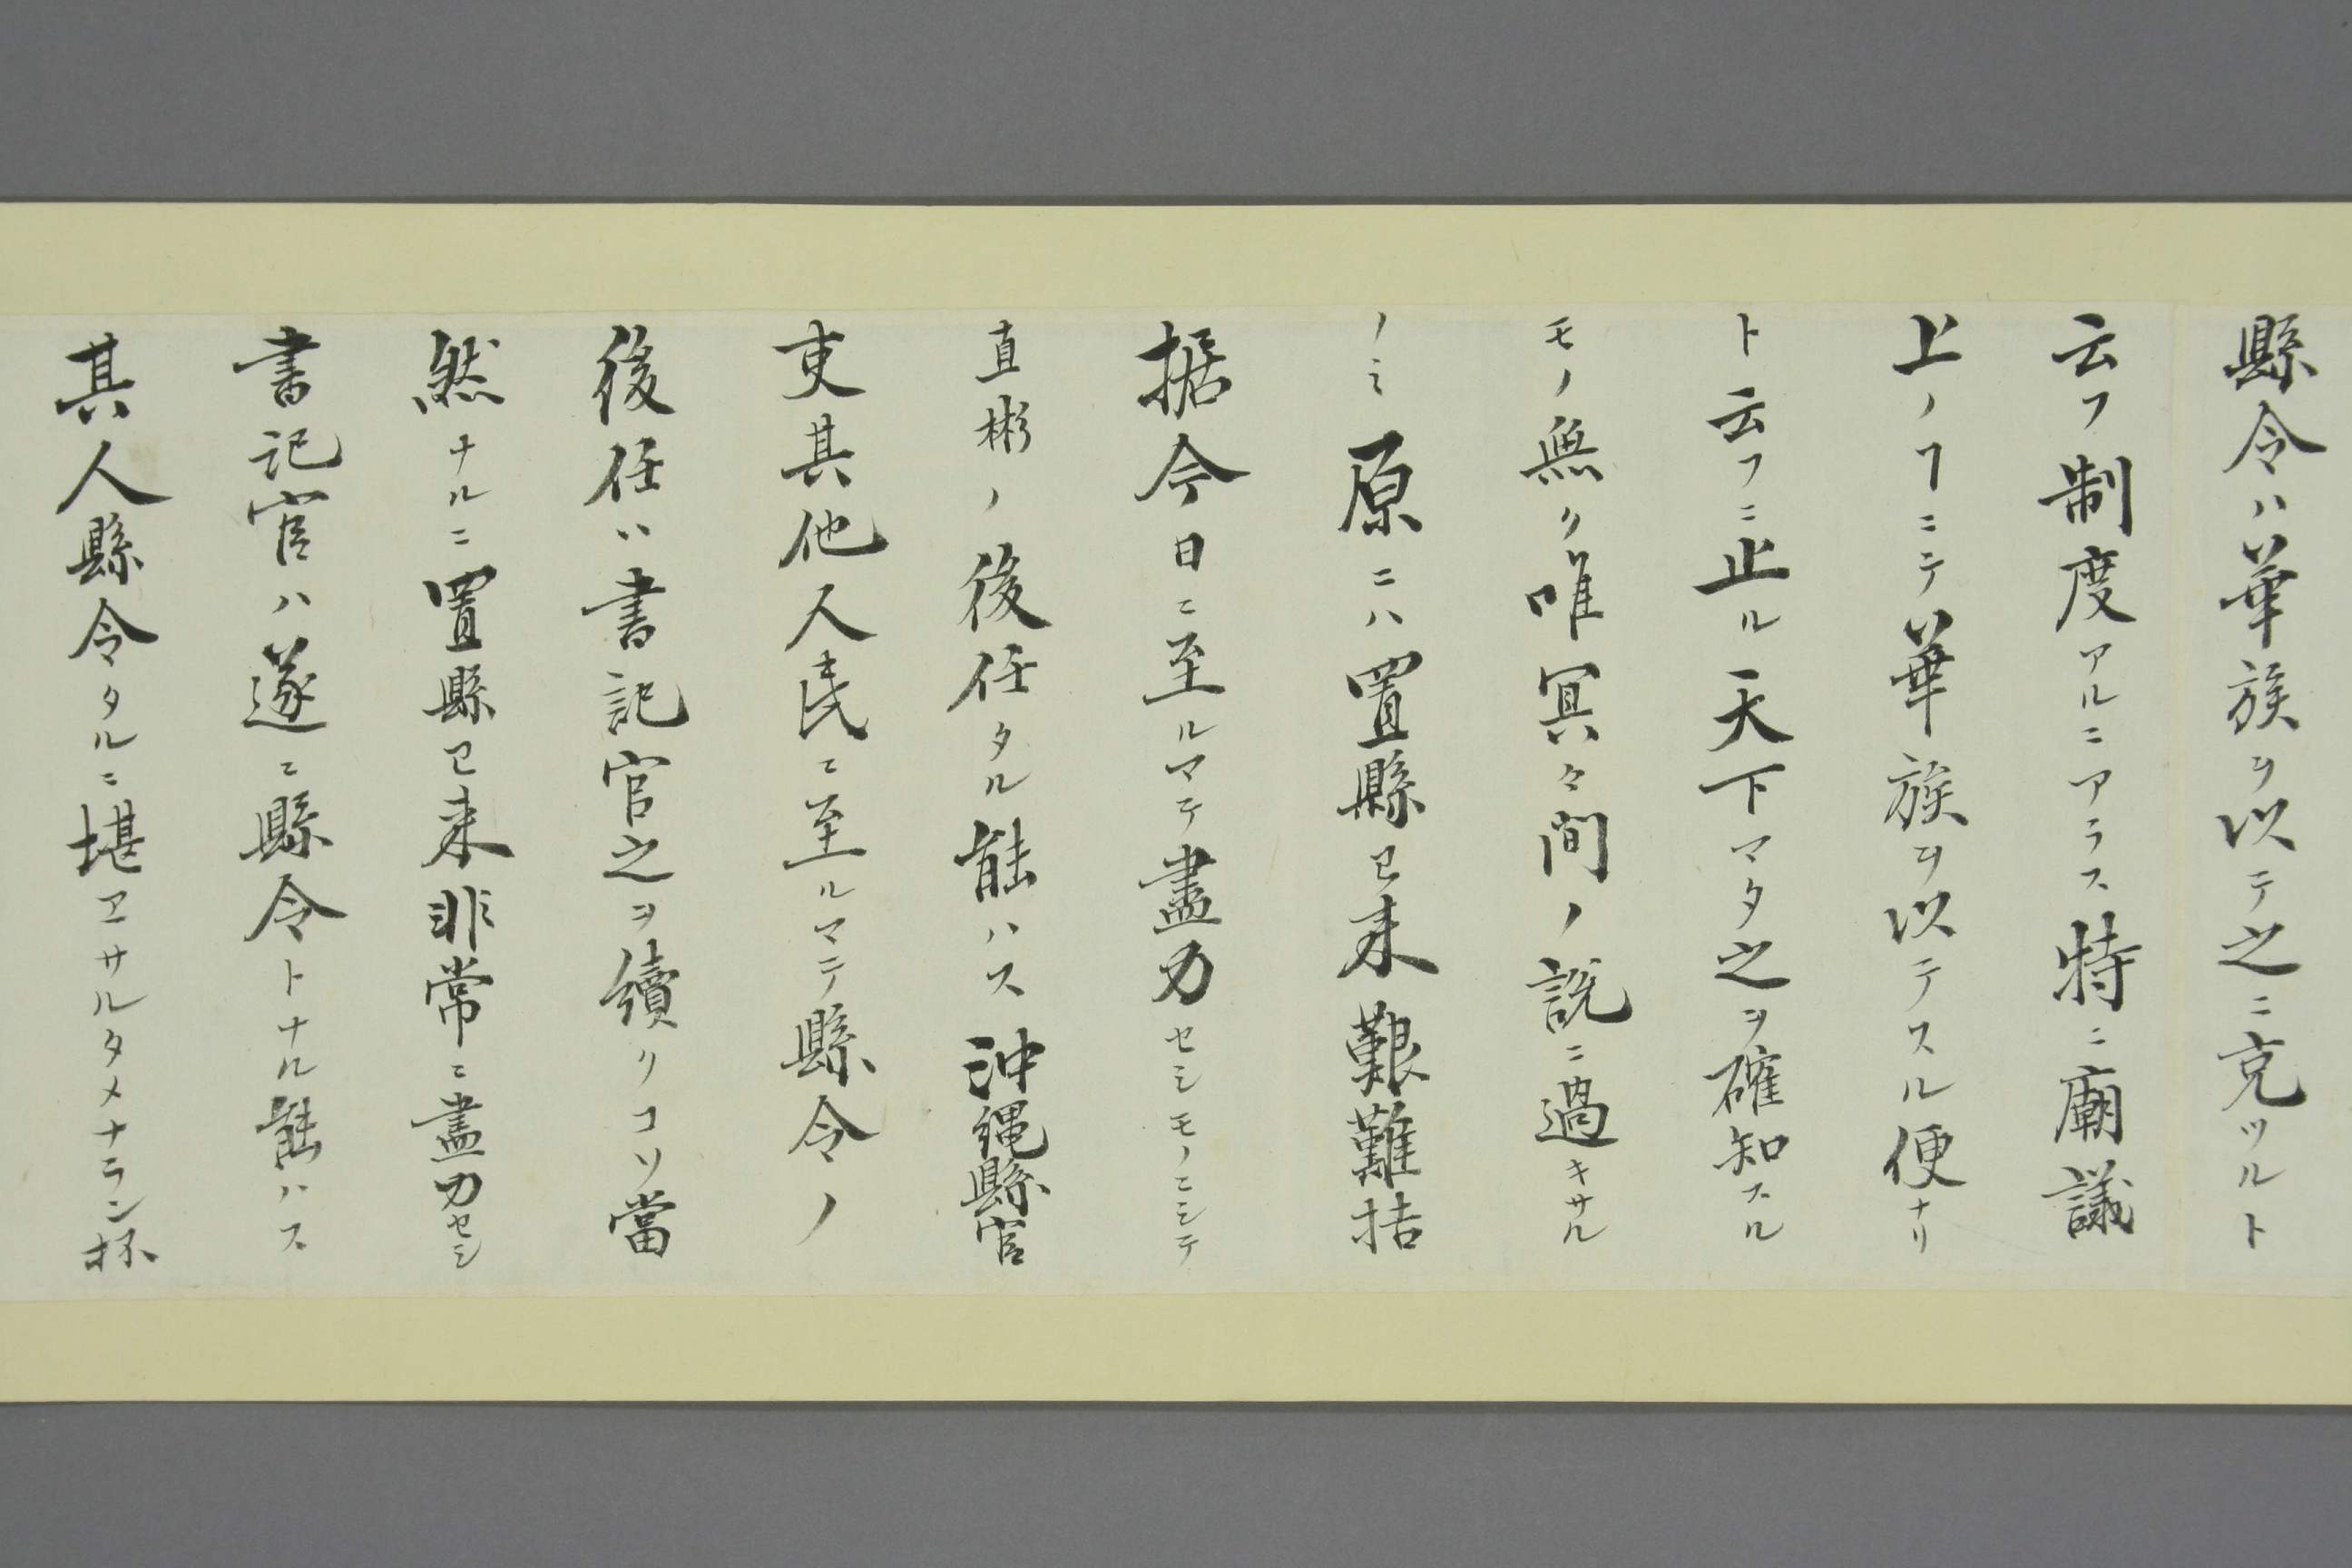 縣令ハ華族ヲ以テ之ニ充ツルト
云フ制度アルニアラス特ニ廟議
上ノヿニテ華族ヲ以テスル便ナリ
ト云フニ止ル天下マタ之ヲ確知スル
モノ無ク唯冥々間ノ説ニ過キサル
ノミ原ニハ置縣已来艱難拮
据今日ニ至ルマテ盡力セシモノニシテ
直彬ノ後任タル能ハス沖縄縣官
吏其他人民ニ至ルマテ縣令ノ
後任ハ書記官之ヲ續クコソ當
然ナルニ置縣已来非常ニ盡力セシ
書記官ハ遂ニ縣令トナル能ハス
其人縣令タルニ堪ヱサルタメナラン抔